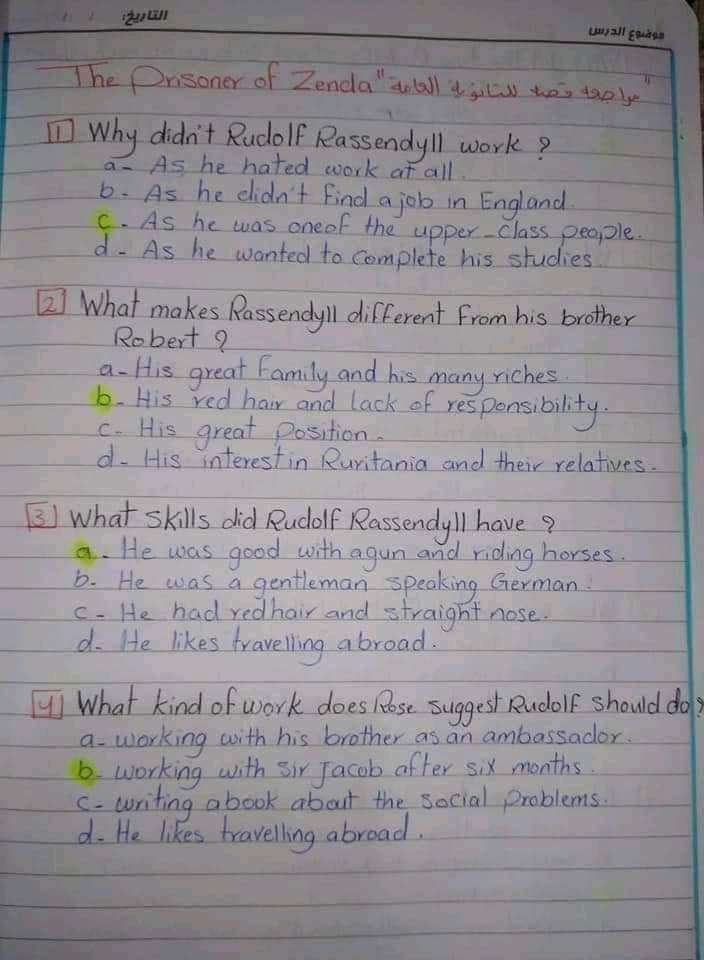 التاريخ: / /
موضوع الدرس
The Prisoner of Zenda "مراجعة قصة للثانوية العامة"
1 Why didn't Rudolf Rassendyll work ?
a- As he hated work at all.
b- As he didn't find a job in England.
c- As he was one of the upper-class people.
d- As he wanted to complete his studies.
2 What makes Rassendyll different from his brother
Robert ?
a- His great family and his many riches.
b- His red hair and lack of responsibility.
c- His great position.
d- His interest in Ruritania and their relatives.
3 What skills did Rudolf Rassendyll have ?
a- He was good with a gun and riding horses.
b- He was a gentleman speaking German.
c- He had red hair and straight nose.
d- He likes travelling abroad.
4 What kind of work does Rose suggest Rudolf should do?
a- working with his brother as an ambassador.
b- working with Sir Jacob after six months.
c- writing a book about the social problems.
d- He likes travelling abroad.